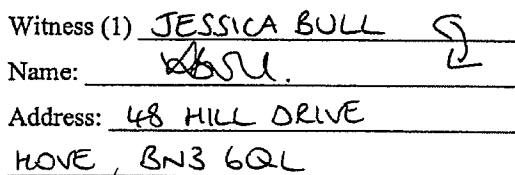 Witness (1) JESSICA BULL
Name:
Address: 48 HILL DRIVE
HOVE, BN3 6QL